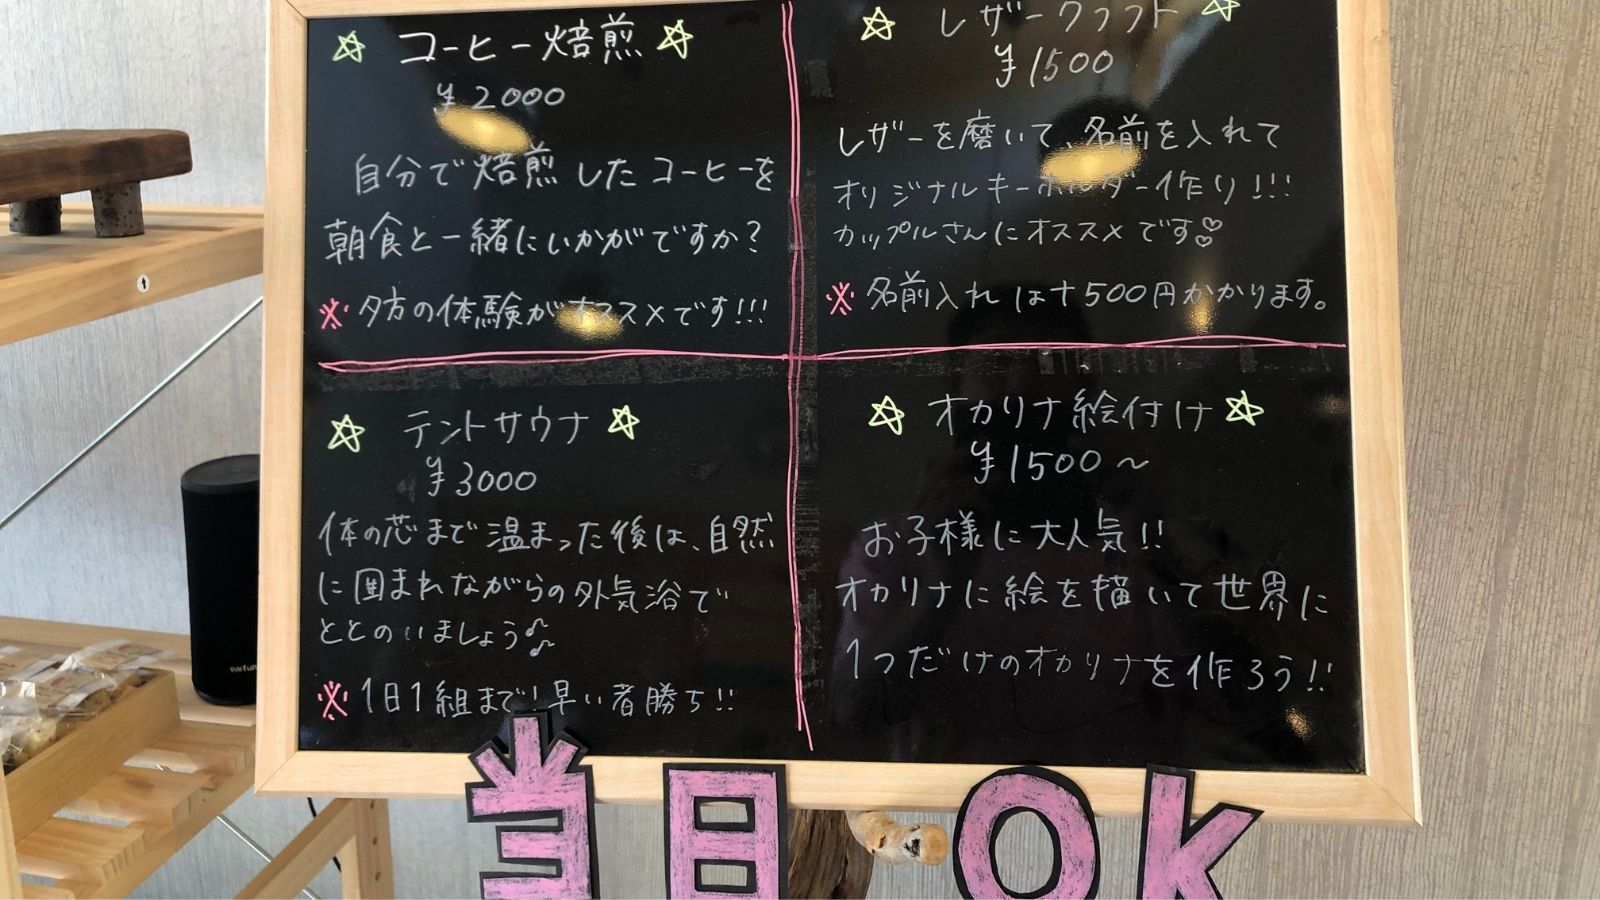 ☆ コーヒー焙煎 ☆
¥2000
自分で焙煎したコーヒーを
朝食と一緒にいかがですか?
※夕方の体験がオススメです!!!
☆ レザークラフト ☆
¥1500
レザーを磨いて、名前を入れて
オリジナルキーホルダー作り!!!
カップルさんにオススメです♡
※名前入れは+500円かかります。
☆ テントサウナ ☆
¥3000
体の芯まで温まった後は、自然
に囲まれながらの外気浴で
ととのいましょう♪
※1日1組まで!早い者勝ち!!
☆ オカリナ絵付け ☆
¥1500〜
お子様に大人気!!
オカリナに絵を描いて世界に
1つだけのオカリナを作ろう!!
当日OK
earfun